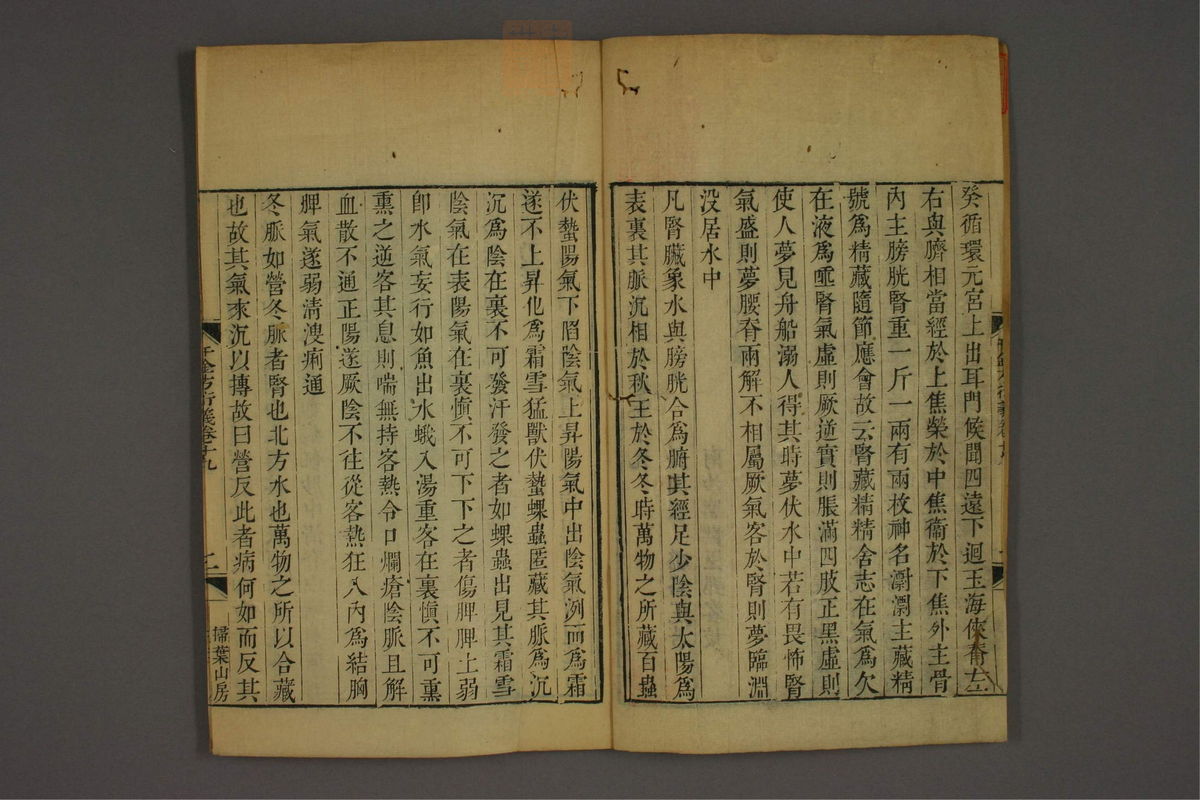 癸循環元宮上出耳門候聞四遠下迴玉海俠脊左
右與臍相當經於上焦榮於中焦衞於下焦外主骨
內主膀胱腎重一斤一兩有兩枚神名𣿬𣿬主藏精
號爲精藏隨節應會故云腎藏精精舍志在氣爲欠
在液爲唾腎氣虛則厥逆實則脹滿四肢正黑虛則
使人夢見舟船溺人得其時夢伏水中若有畏怖腎
氣盛則夢腰脊兩解不相屬厥氣客於腎則夢臨淵
没居水中
凡腎臟象水與膀胱合爲腑其經足少陰與太陽爲
表裏其脈沉相於秋王於冬冬時萬物之所藏百蟲
伏蟄陽氣下陷陰氣上昇陽氣中出陰氣洌而爲霜
遂不上昇化爲霜雪猛獸伏蟄蜾蟲匿藏其脈爲沉
沉爲陰在裏不可發汗發之者如蜾蟲出見其霜雪
陰氣在表陽氣在裏愼不可下下之者傷脾脾土弱
卽水氣妄行如魚出水蛾入湯重客在裏愼不可熏
熏之逆客其息則喘無持客熱令口爛瘡陰脈且解
血散不通正陽遂厥陰不往從客熱狂入內爲結胸
脾氣遂弱清溲痢通
冬脈如營冬脈者腎也北方水也萬物之所以合藏
也故其氣來沉以摶故曰營反此者病何如而反其
千金方衍義卷十九
二
掃葉山房